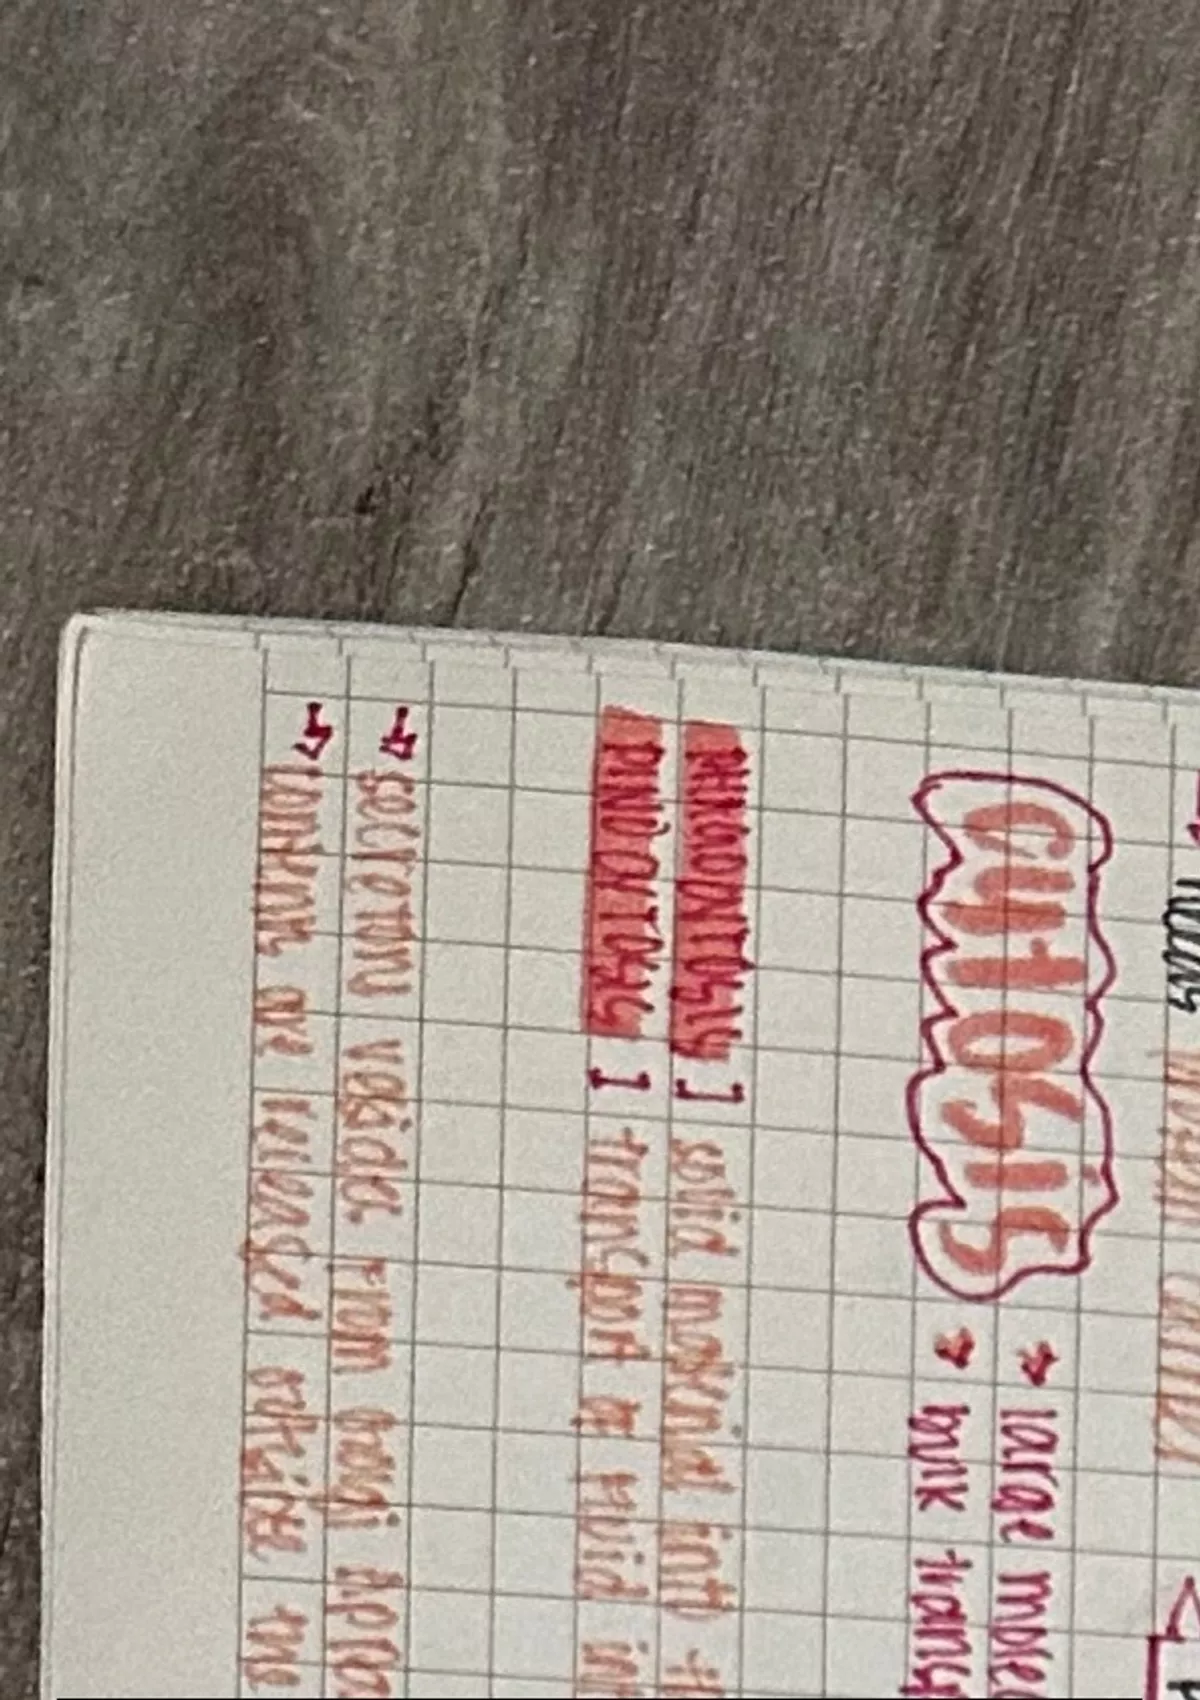 CYTOSIS
→ large molec
→ bulk trans
PHAGOCYTOSIS] solid material into
PINOCYTOSIS] transport of fluid in
→ secretory vesicle from Golgi Appa
→ contents are released outside the